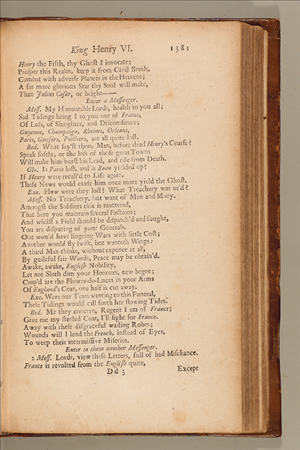 King Henry VI. 1381
Henry the Fifth, thy Ghost I invocate;
Prosper this Realm, keep it from Civil Broils,
Combat with adverse Planets in the Heavens;
A far more glorious Star thy Soul will make,
Than Julius Cæsar, or bright——
Enter a Messenger.
Mess. My Honourable Lords, health to you all;
Sad Tidings bring I to you out of France,
Of Loss, of Slaughter, and Discomfiture;
Guyenne, Champaign, Rheims, Orleans,
Paris, Guysors, Poictiers, are all quite lost.
Bed. What say'st thou, Man, before dead Henry's Coarse?
Speak softly, or the loss of those great Towns
Will make him burst his Lead, and rise from Death.
Glo. Is Paris lost, and is Roan yielded up?
If Henry were recall'd to Life again,
These News would cause him once more yield the Ghost.
Exe. How were they lost? What Treachery was us'd?
Mess. No Treachery, but want of Men and Mony.
Amongst the Soldiers this is muttered,
That here you maintain several Factions;
And whilst a Field should be dispatch'd and fought,
You are disputing of your Generals.
One would have lingring Wars with little Cost;
Another would fly swift, but wanteth Wings:
A third Man thinks, without expence at all,
By guileful fair Words, Peace may be obtain'd.
Awake, awake, English Nobility,
Let not Sloth dim your Honours, new begot;
Crop'd are the Flower-de-Luces in your Arms
Of England's Coat, one half is cut away.
Exe. Were our Tears wanting to this Funeral,
These Tidings would call forth her flowing Tides.
Bed. Me they concern, Regent I am of France;
Give me my steeled Coat, I'll fight for France.
Away with these disgraceful wailing Robes;
Wounds will I lend the French, instead of Eyes,
To weep their intermissive Miseries.
Enter to them another Messenger.
2 Mess. Lords, view these Letters, full of bad Mischance.
France is revolted from the English quite,
Dd 3 Except